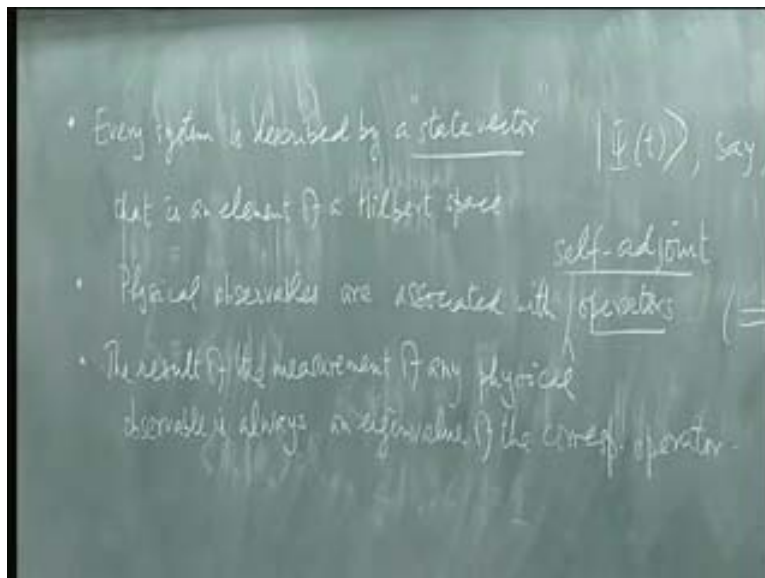 • Every system is described by a "state vector" |Ψ(t)⟩, say,
that is an element of a Hilbert space
self-adjoint
• Physical observables are associated with operators (=
• The result of the measurement of any physical
observable is always an eigenvalue of the corresp. operator.